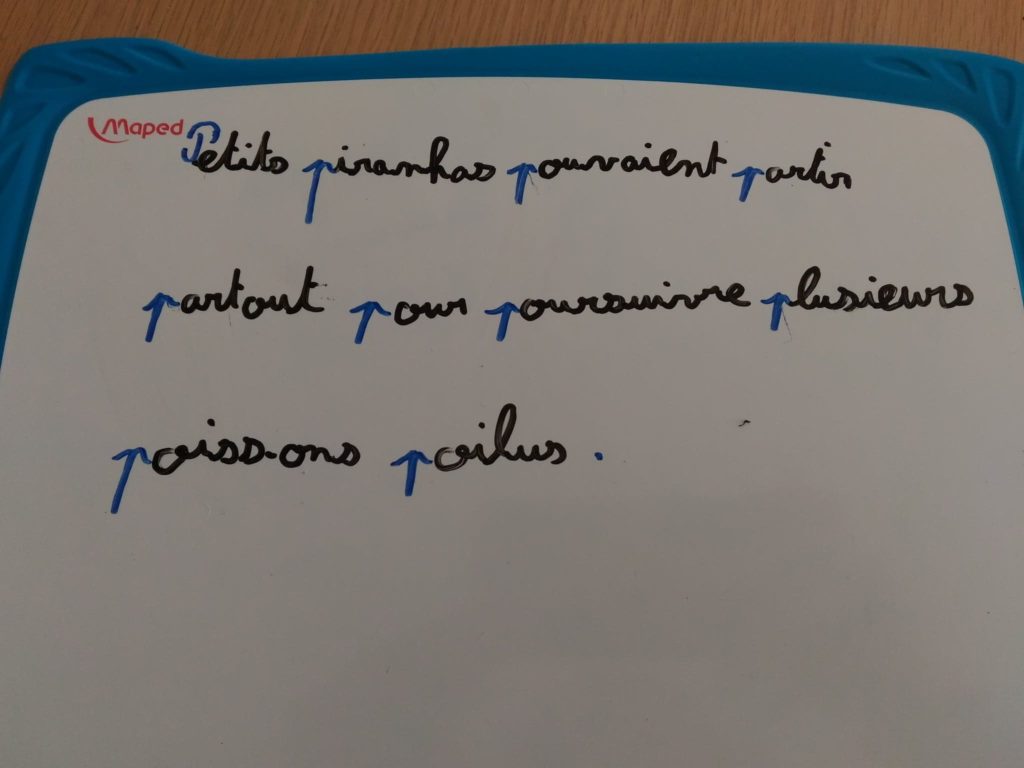 Maped
Petits piranhas pouvaient partir
partout pour poursuivre plusieurs
poissons poilus.